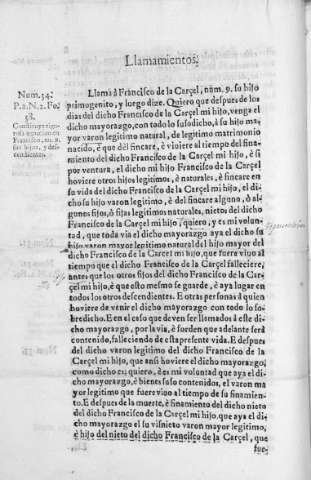 Llamamientos.
Num. 34.
P. 2. N. 2. Fo.
58.
Francisco, nu. 9.
Llama à Francisco de la Carçel, num. 9. su hijo
primogenito, y luego dize. Quiero que despues de los
dias del dicho Francisco de la Carçel mi hijo, venga el
dicho mayorazgo, con todo lo susodicho, à su hijo ma-
yor varon legitimo natural, de legitimo matrimonio
nacido, è que dèl fincare, è viuiere al tiempo del fina-
miento del dicho Francisco de la Carçel mi hijo, è si
por ventura, el dicho mi hijo Francisco de la Carçel
houiere otros hijos legitimos, è naturales, è fincare en
su vida del dicho Francisco de la Carçel mi hijo, el di-
cho su hijo varon legitimo, è del fincare alguno, ò al-
gunos fijos, ò fijas legitimos naturales, nietos del dicho
Francisco de la Carçel mi hijo, quiero, y es mi volun-
tad, que toda via el dicho mayorazgo aya el dicho su
hijo varon mayor legitimo natural del hijo mayor del
dicho Francisco de la Carçel mi hijo, que fuere viuo al
tiempo que el dicho Francisco de la Carçel falleciere,
antes que los otros fijos del dicho Francisco de la Car-
çel mi hijo, è que esto mesmo se guarde, è aya lugar en
todos los otros descendientes. E otras personas à quien
houiere de venir el dicho mayorazgo con todo lo so-
bredicho. E en el caso que deven ser llamados à este di-
cho mayorazgo, por la via, è forden que adelante serà
contenido, falleciendo de esta presente vida. E despues
del dicho varon legitimo del dicho Francisco de la
Carçel mi hijo, que ansi houiere el dicho mayorazgo,
como dicho es; quiero, è es mi voluntad que aya el di-
cho mayorazgo, è bienes suso contenidos, el varon ma
yor legitimo que fuere viuo al tiempo de su finamien-
to. E despues de la muerte, è finamiento del dicho nieto
del dicho Francisco de la Carçel mi hijo, que aya el di-
cho mayorazgo el su visnieto varon mayor legitimo,
è hijo del nieto del dicho Francisco de la Carçel, que
fue-